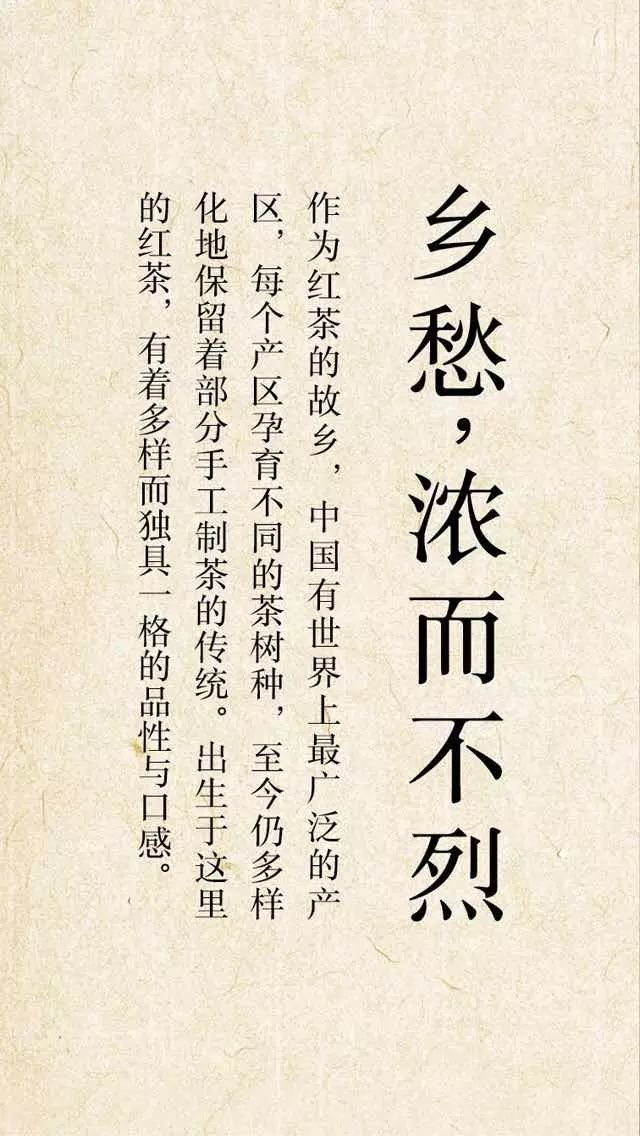 乡愁，浓而不烈
作为红茶的故乡，中国有世界上最广泛的产
区，每个产区孕育不同的茶树种，至今仍多样
化地保留着部分手工制茶的传统。出生于这里
的红茶，有着多样而独具一格的品性与口感。